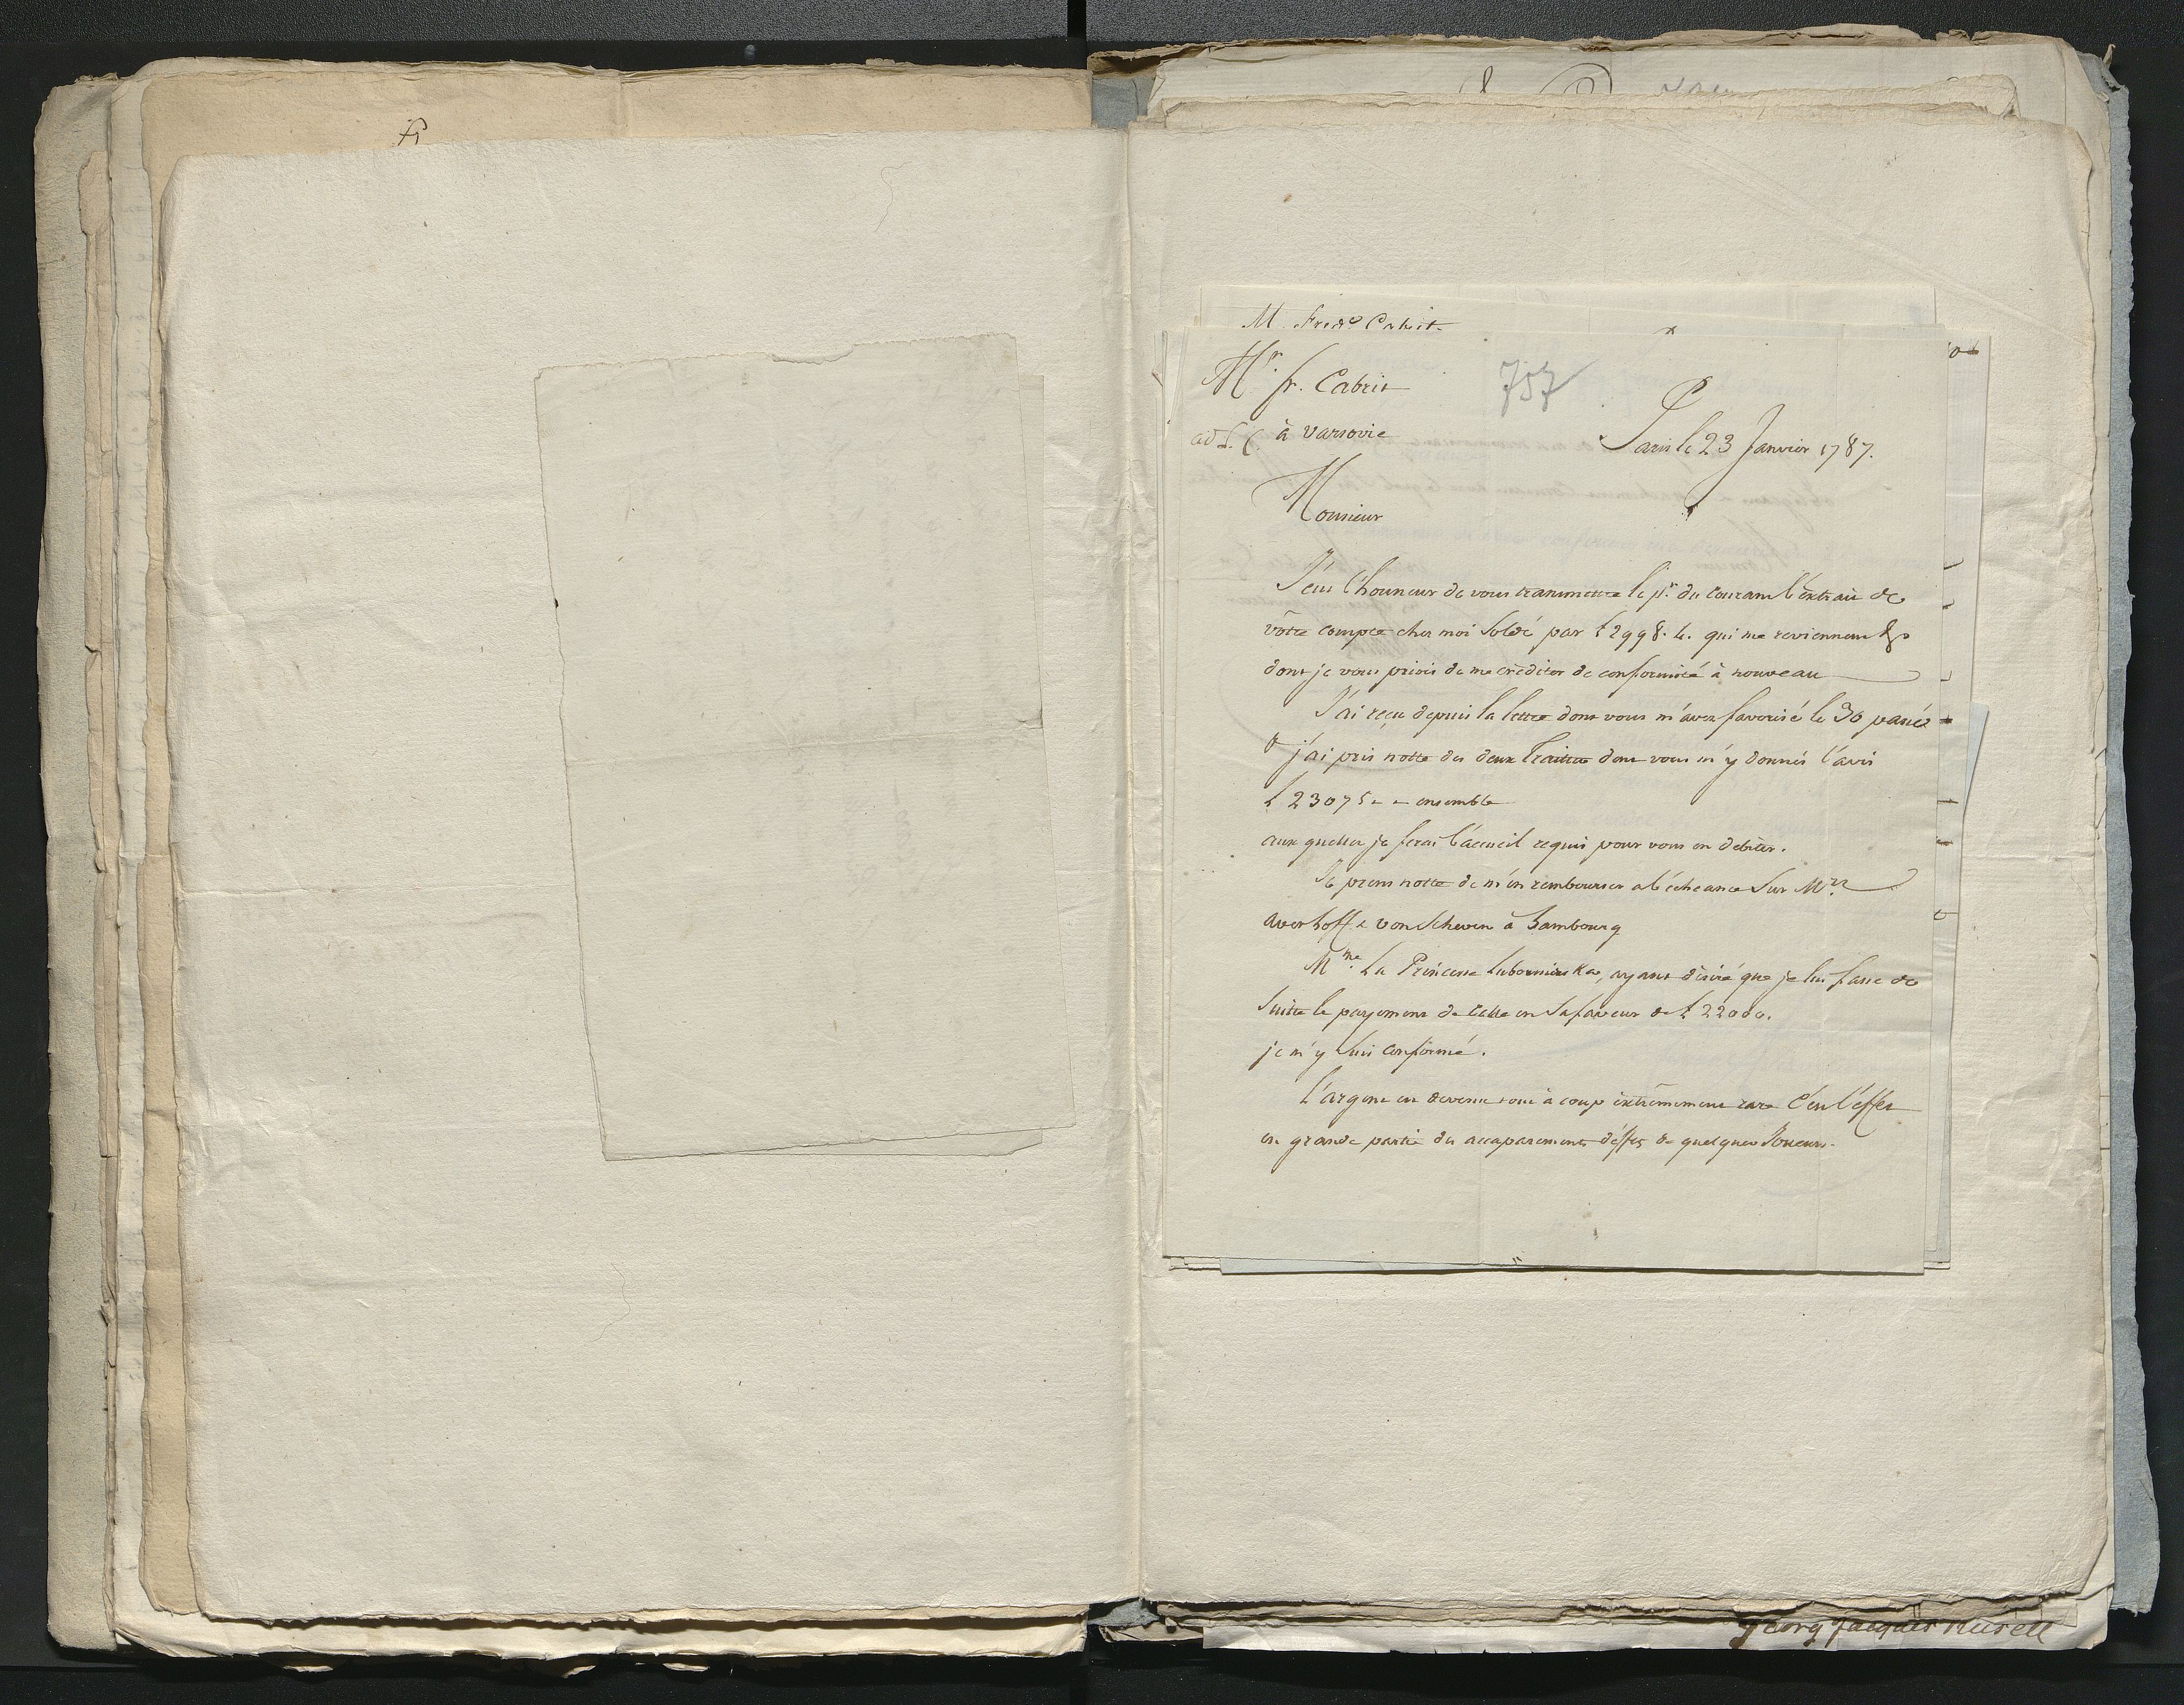 M. Fred.º Cabrit
Mr. fr. Cabrit
757
à Varsovie
Paris le 23 Janvier 1787.
Monsieur
J'eus l'honneur de vous transmettre le pr. du courant l'extrait de
vôtre compte chez moi Soldé par £ 2998. 4. qui me reviennent &
dont je vous priois de me créditer de conformité à nouveau
J'ai reçu depuis la lettre dont vous m'avez favorisé le 30 passé
& j'ai pris notte des deux Traittes dont vous m'y donnés l'avis
£ 23075 - - ensemble
aux quelles je ferai l'accueil requis pour vous en debiter.
Je prens notte de m'en rembourser a l'écheance Sur Mrs.
averhoff & von Scheven à hambourg
Mme. La Princesse Lubomirska, ayant désiré que je lui fasse de
Suitte le payement de celle en Sa faveur de £ 22000.
je m'y Suis conformé.
L'argent est devenu tout à coup extrêmement rare C'est l'effet
en grande partie des accaparements d'effets de quelques Joueurs.
Georg Jacques